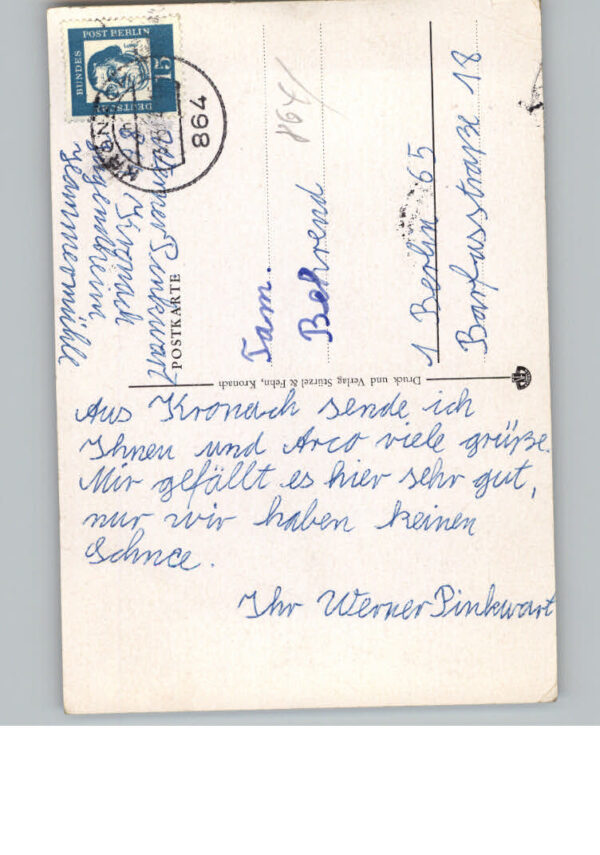 Aus Kronach sende ich
Ihnen und Arco viele grüße.
Mir gefällt es hier sehr gut,
nur wir haben keinen
Schnee.
Ihr Werner Pinkwart
Werner Pinkwart
Kronach
Jugendheim
Hammermühle
POSTKARTE
Fam.
Behrend
1 Berlin 65
Barfusstraße 18
Druck und Verlag Stürzel & Fehn, Kronach
864
DEUTSCHE
BUNDES
POST BERLIN
15
KRONACH
864